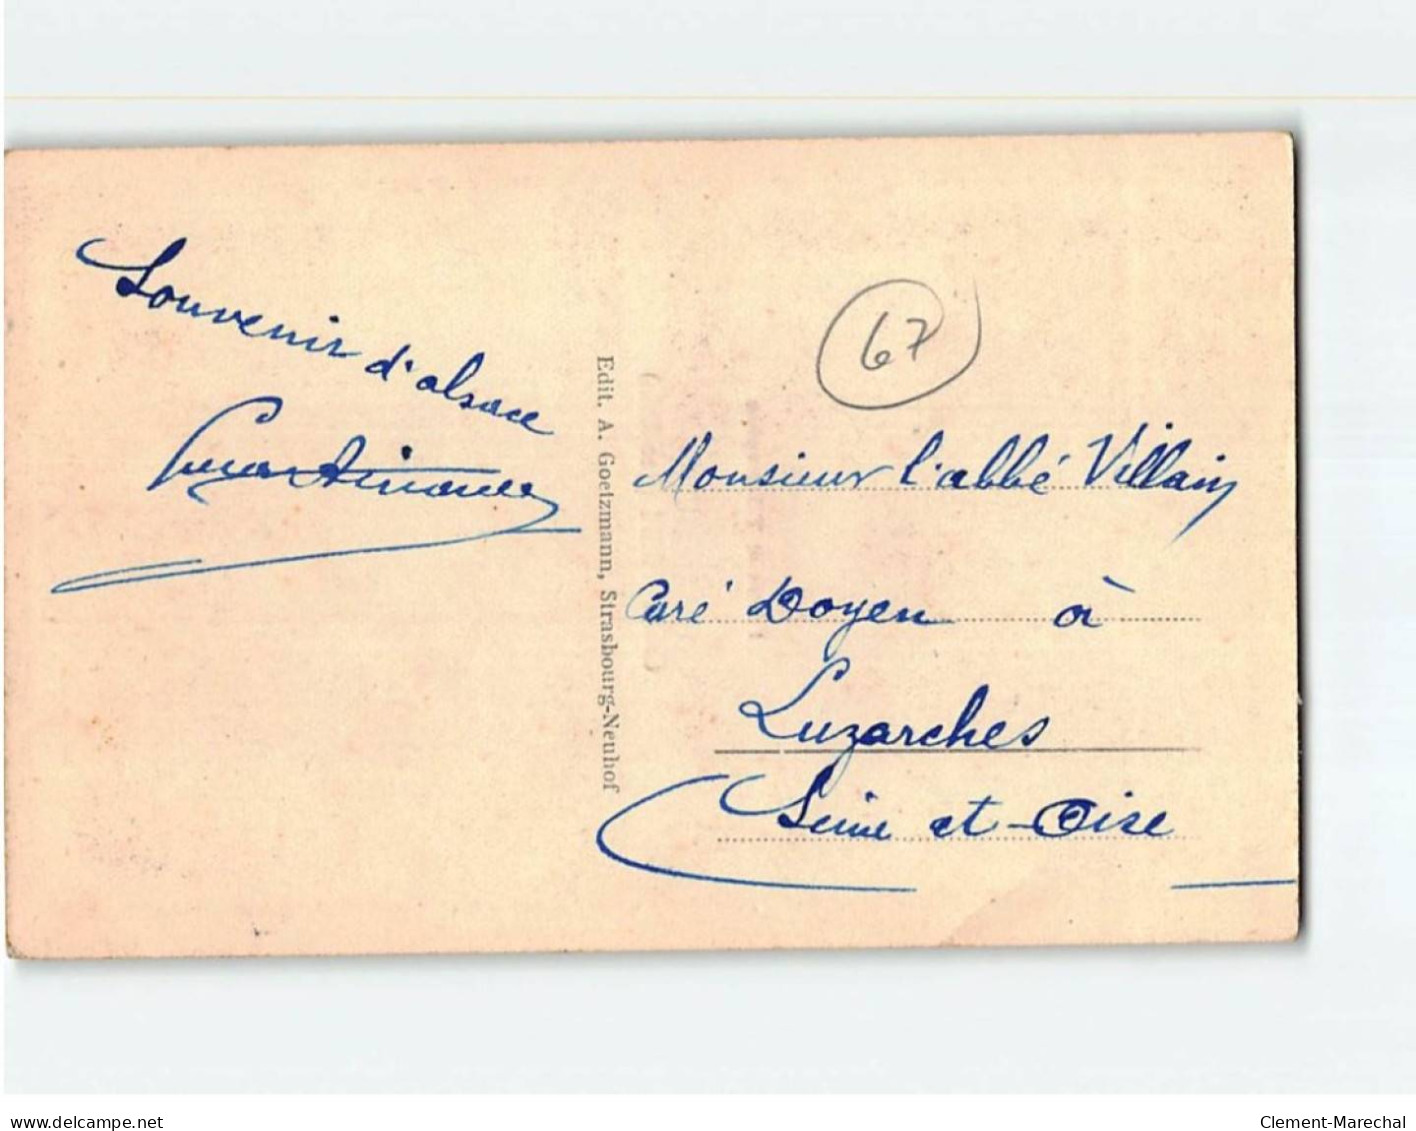 Souvenir d'alsace
67
Edit. A. Goetzmann, Strasbourg-Neuhof
Monsieur l'abbé Villain
Curé Doyen à
Luzarches
Seine et-Oise
delcampe.net
Clement-Marechal